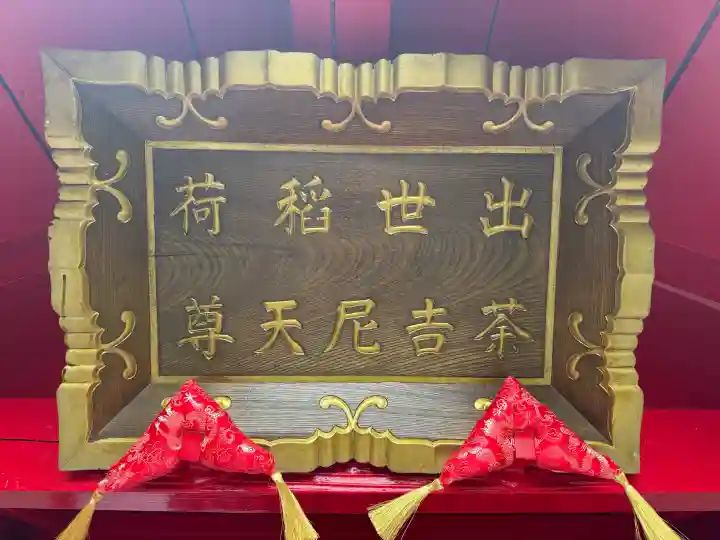 出世稲荷
茶吉尼天尊